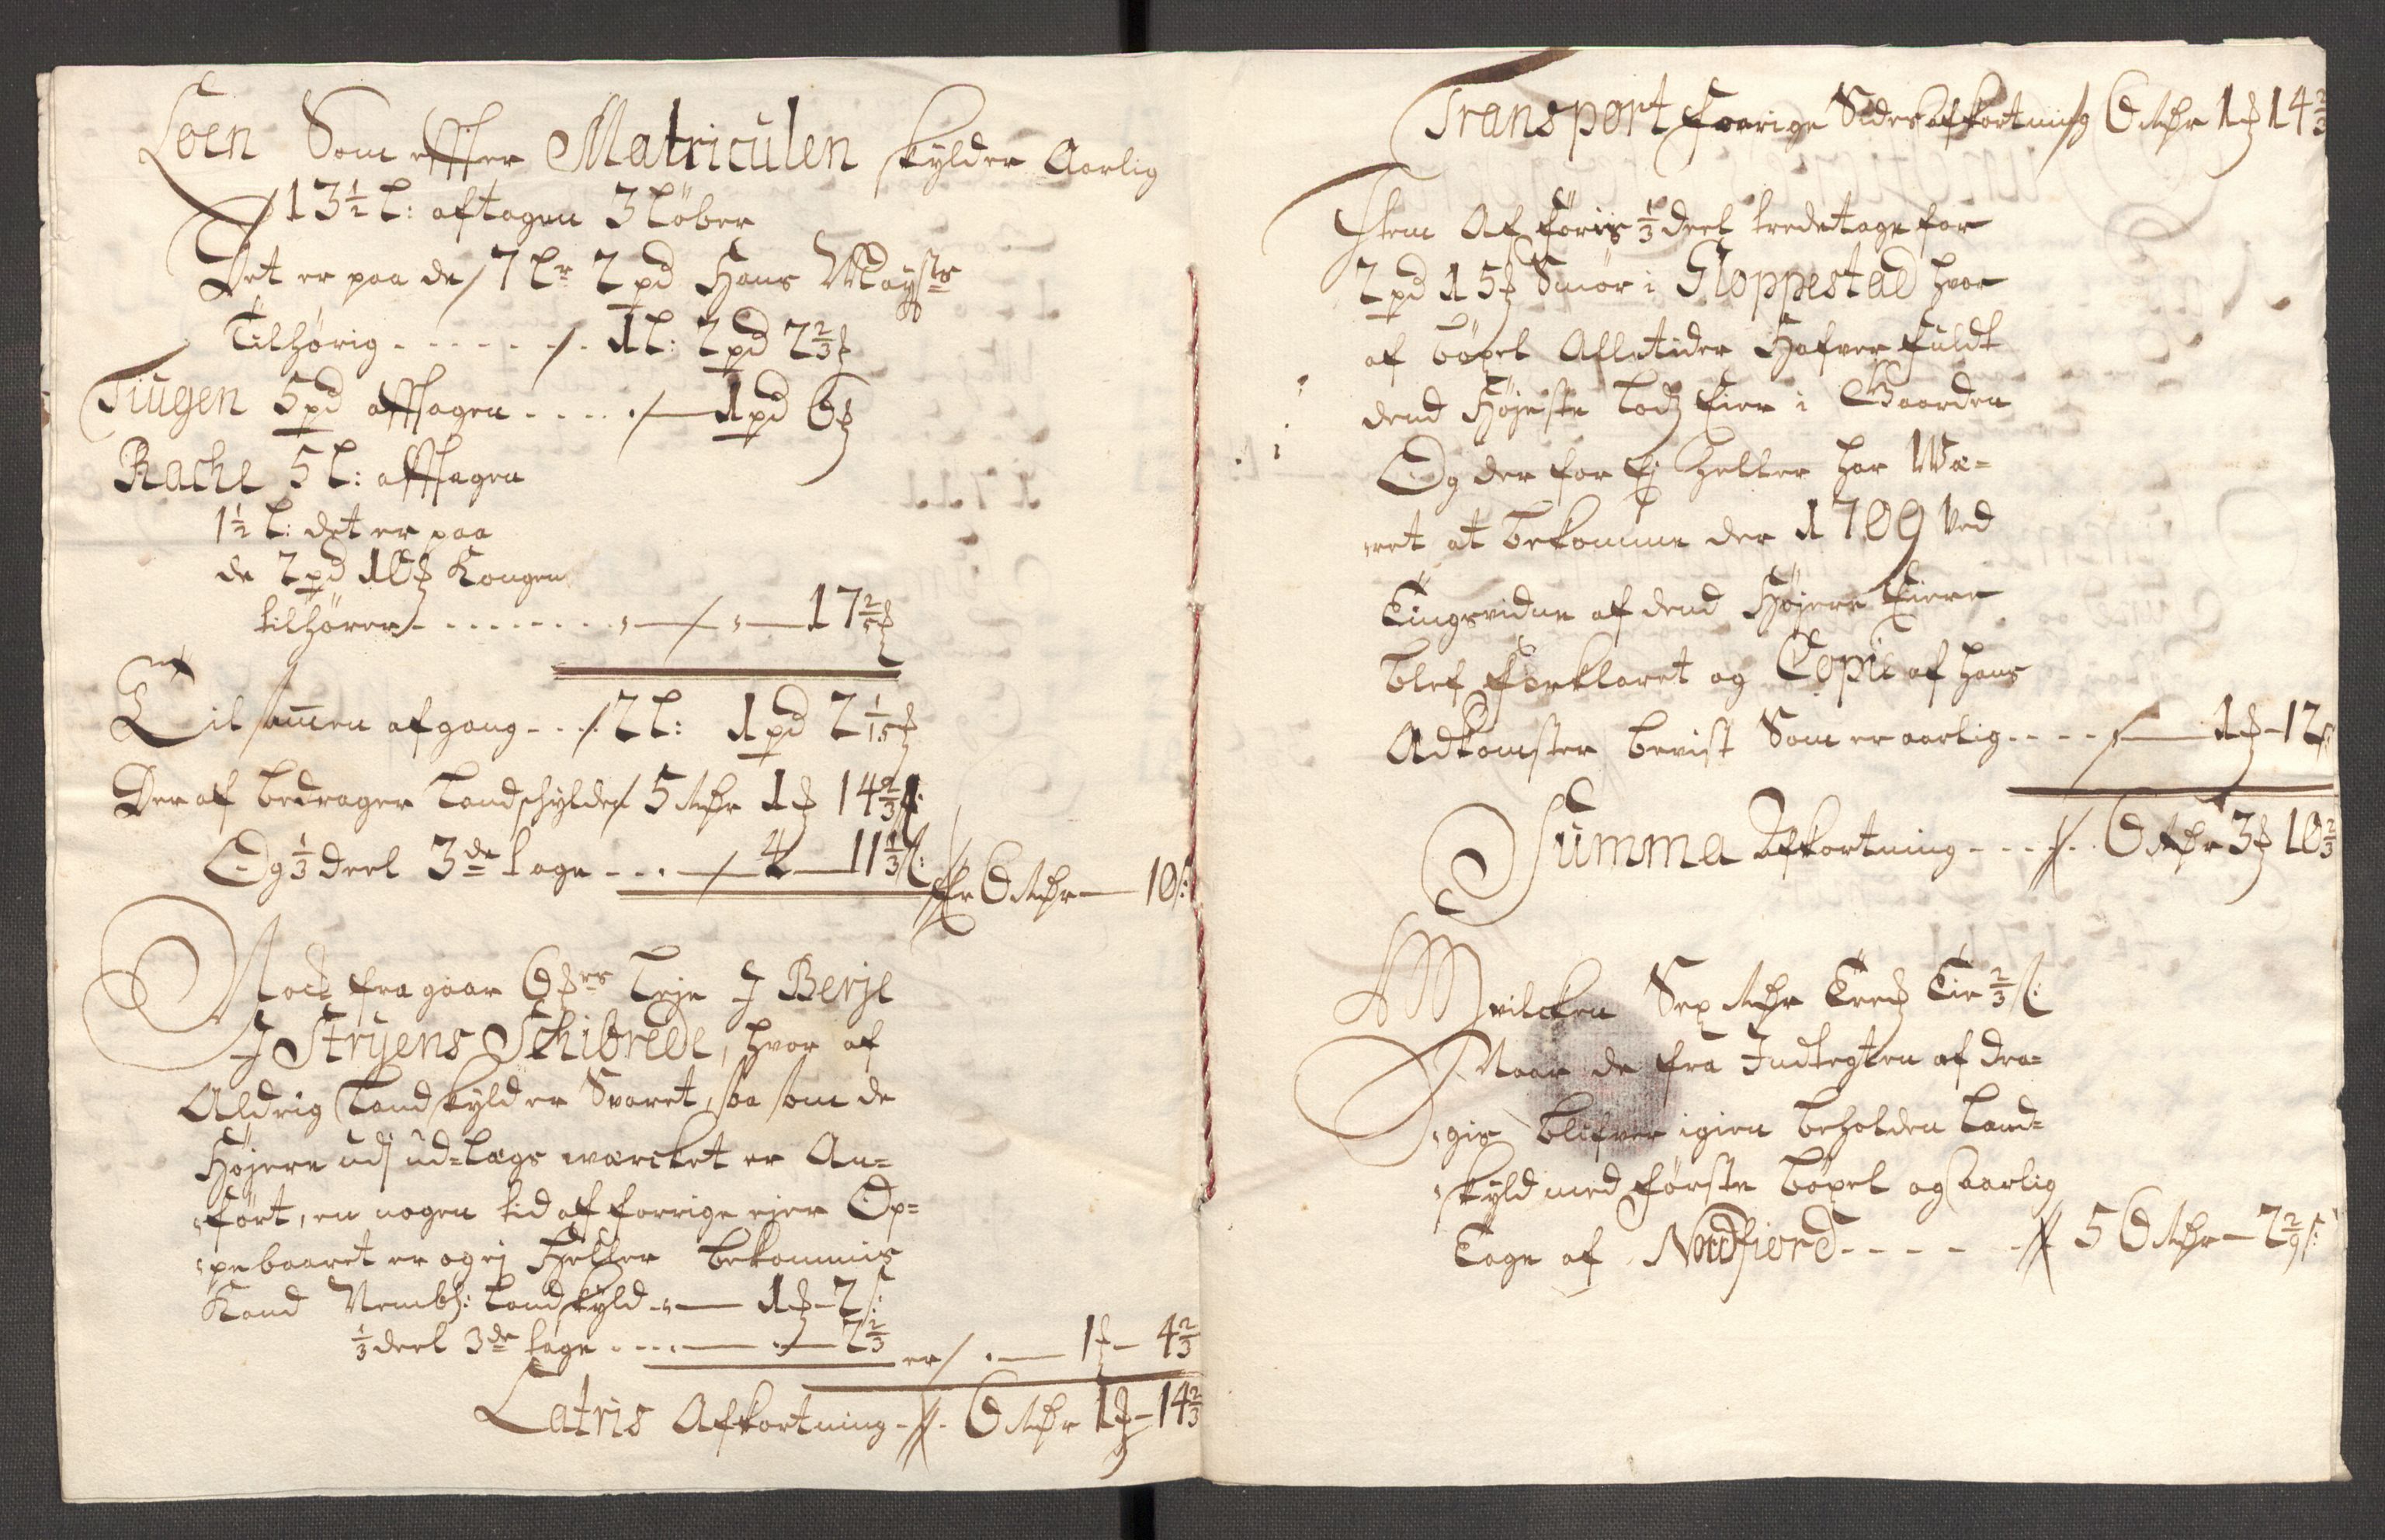 Loen Som effter Matriculen skylder Aarlig
13½ L: aftagen 3 Löber
Det er paa de 7 Lr 2 pd Hans Maysts
Tilhørig - - - - - - 1 L: 2 pd 2⅔ 
Tiugen 5 pd afftagen - - - - 1 pd 6
Rache 5 L: afftagen
1½ L: det er paa
de 2 pd 10 Kongen
tilhører - - - - - - - - 17⅖
Til sammen afgang - - - 2 L: 1 pd 2 1/15
Der af bedrager Landschylden 5 Rdr 1 14⅔ s:
Og ⅓ deel 3de tage - - - 4 - 11⅓ s: er 6 Rdr - 10 s:
Noch fragaar 6 rs Leje J Berje
J Stryens Schibrede, hvor af
Aldrig Landskyld er Svaret, saa som de
Højere udj ud=Lægs wærcket er An=
ført, en nogen tid af forrige ejer Op=
pebaaret er og ej Heller bekommis
Kand Nembl: Landskyld - 1 - 2 s:
⅓ deel 3de tage - - - - 2⅔ er - 1 - 4⅔
Latris Afkortning - 6 Rdr 1 - 14⅔
Transport forrige Sides Afkortning 6 Rdr 1 14⅔
Item Af Føris ⅓ deel tredetage for
2 pd 15 Smör i Gloppestad hvor
af böxel Alletider Hafver fuldt
dend Højeste Lodz Eier i Gaarden
Og der for Ej heller har Wæ=
ret at bekomme der 1709 Ved
Tingsvidne af dend Højere Eiere
blef forklaret og Copie af hans
Adkomster bevist Som er aarlig - - - - 1 - 12 s
Summa Afkortning - - - - 6 Rdr 3 10⅔
Hvilcken Sex Rdr Tre Tie ⅔ s:
Naar de fra Indtegten af dra=
gis blifver igien beholden Land=
skyld med første böxel og aarlig
Tage af Nordfiord - - - - 56 Rdr - 2 2/9 s: